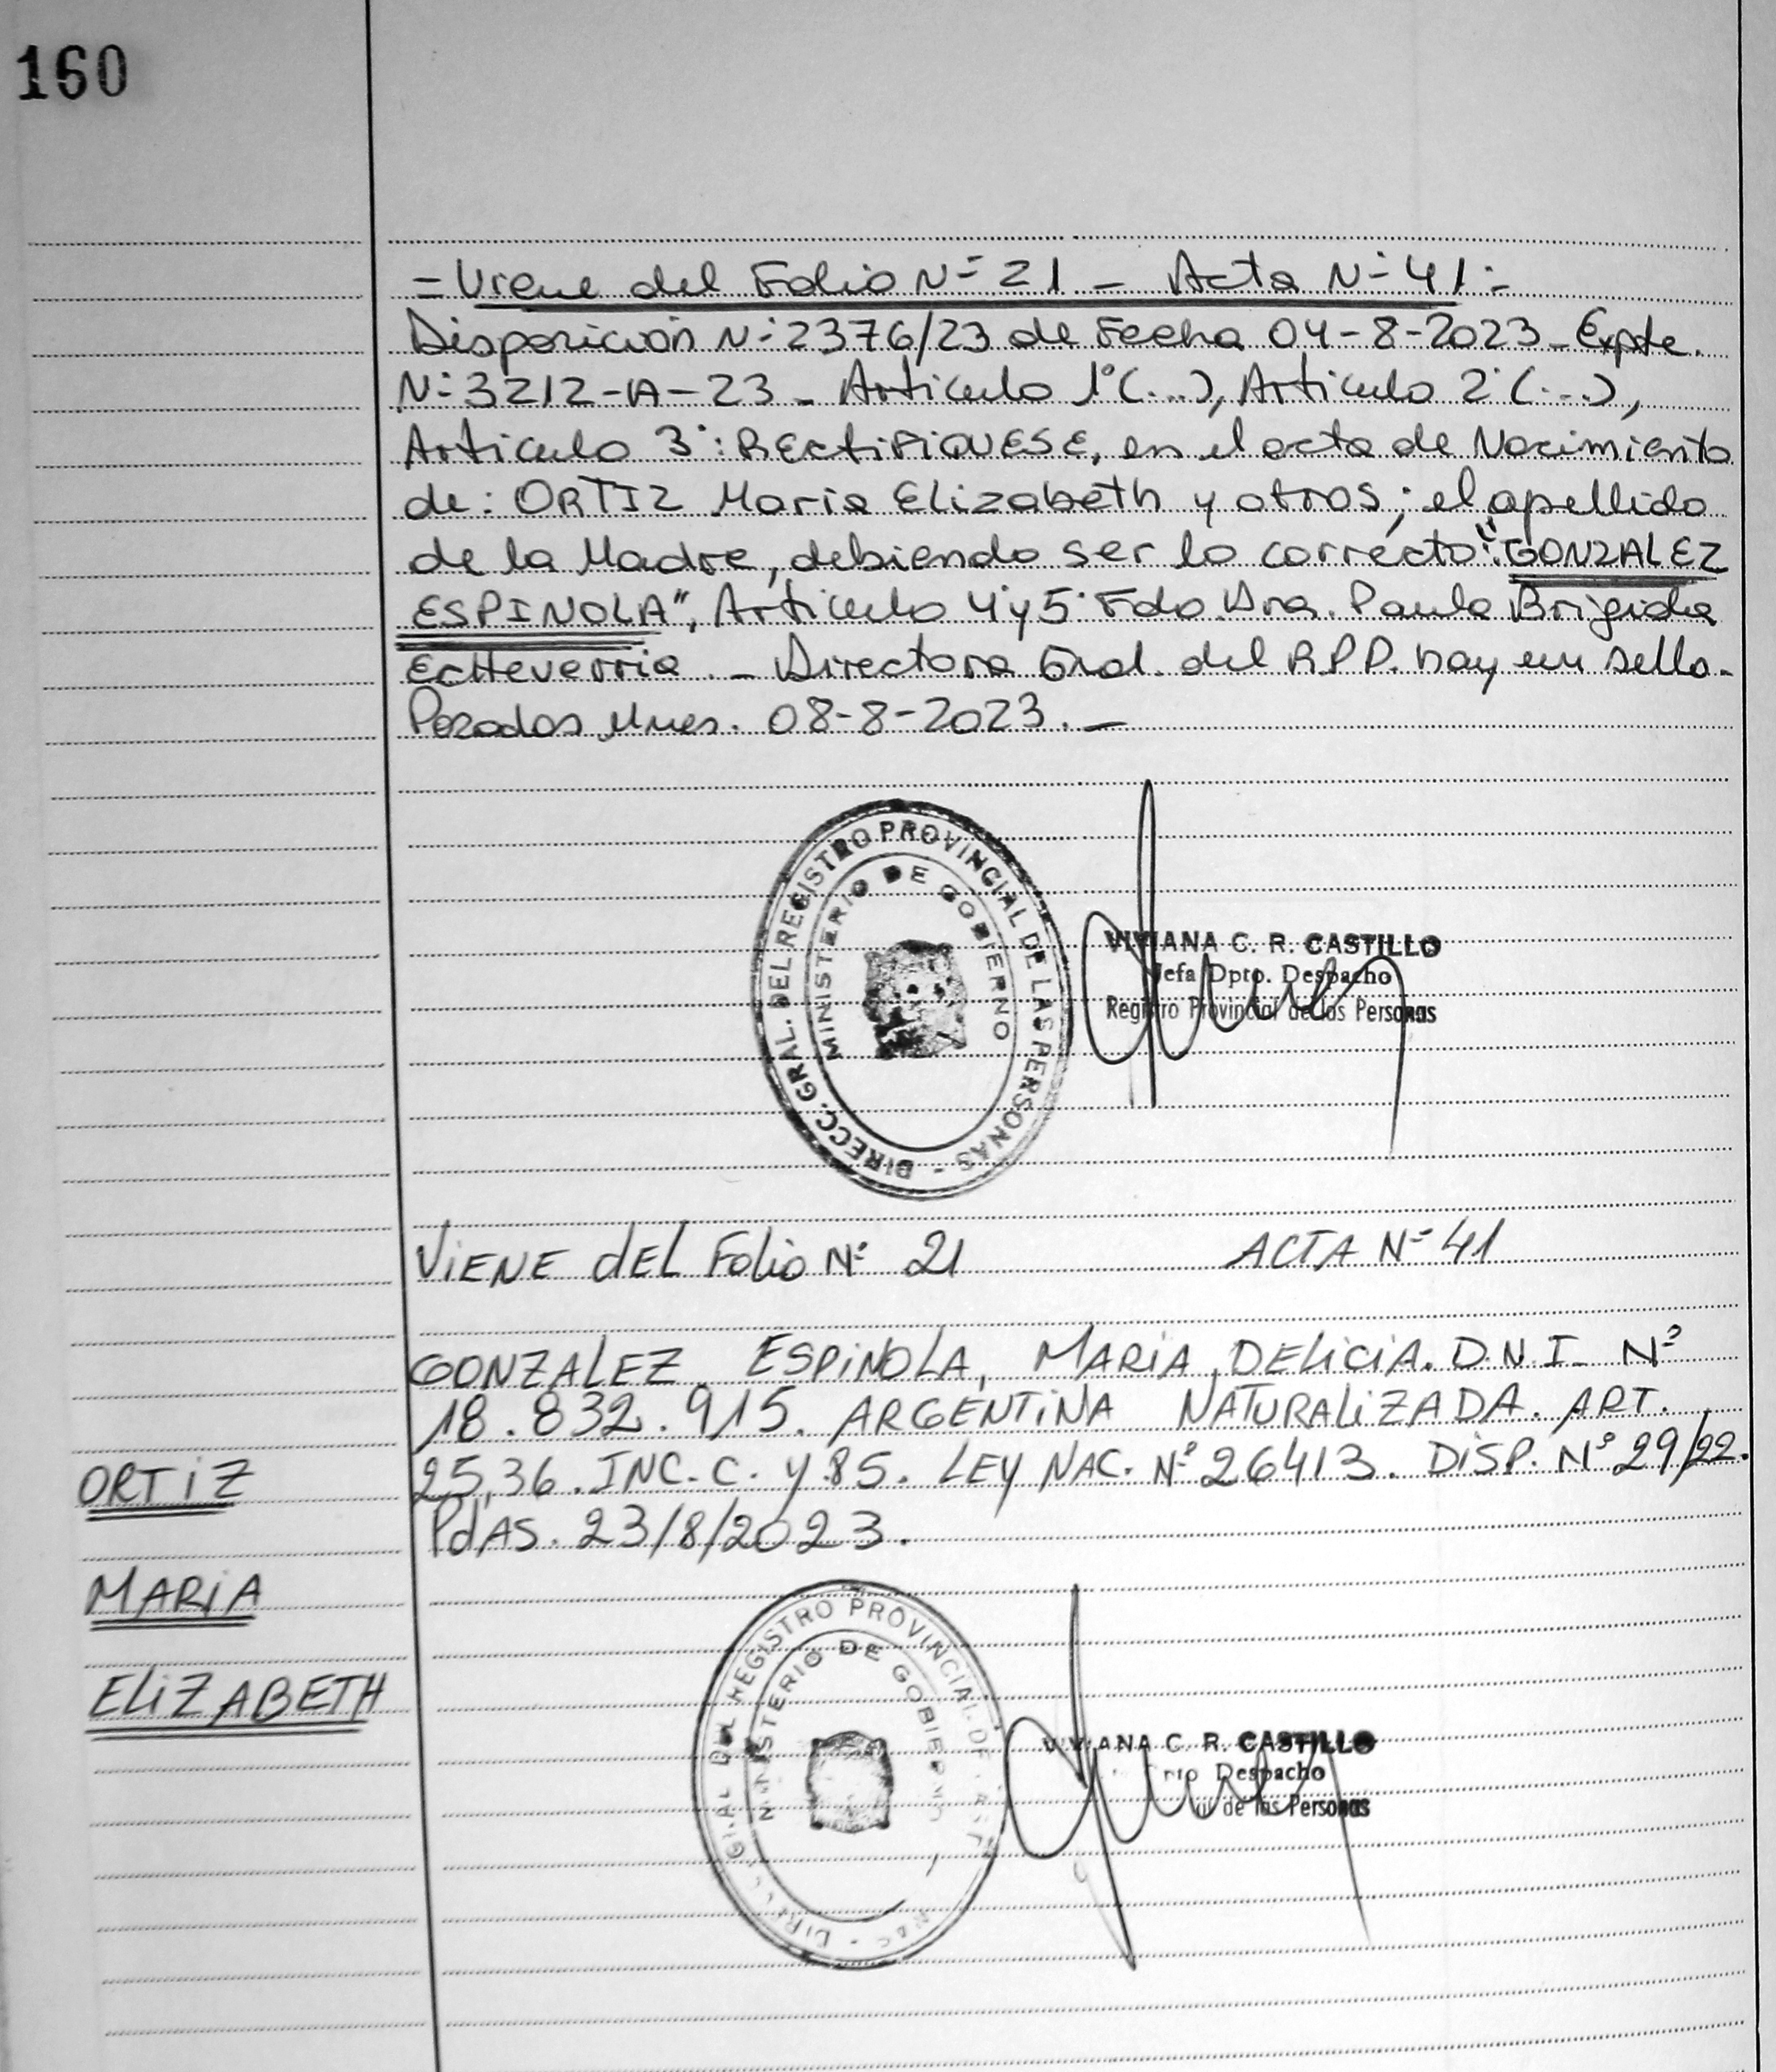 160
= Viene del Folio Nº 21 - Acta Nº 41 =
Disposición Nº 2376/23 de Fecha 04-8-2023 - Expte.
Nº 3212-A-23 - Artículo 1º (...), Artículo 2º (...),
Artículo 3º: RECTIFIQUESE, en el acta de Nacimiento
de: ORTIZ María Elizabeth y otros; el apellido
de la Madre, debiendo ser lo correcto: "GONZALEZ
ESPINOLA", Artículo 4º y 5º Fdo. Dra. Paula Brigida
Echeverria. - Directora Gral. del R.P.P. hay un sello.
Posadas Mnes. 08-8-2023. -
DIRECC. GRAL. DEL REGISTRO PROVINCIAL DE LAS PERSONAS -
MINISTERIO DE GOBIERNO
VIVIANA C. R. CASTILLO
Jefa Dpto. Despacho
Registro Provincial de las Personas
VIENE DEL Folio Nº 21 ACTA Nº 41
GONZALEZ ESPINOLA, MARIA DELICIA. D.N.I. Nº
18.832.915. ARGENTINA NATURALIZADA. ART.
ORTIZ
25,36. INC. C. Y 85. LEY NAC. Nº 26413. DISP. Nº 29/22.
PdAS. 23/8/2023.
MARIA
ELIZABETH
DIRECC. GRAL DEL REGISTRO PROVINCIAL DE
MINISTERIO DE GOBIERNO
VIVIANA C. R. CASTILLO
Despacho
de las Personas